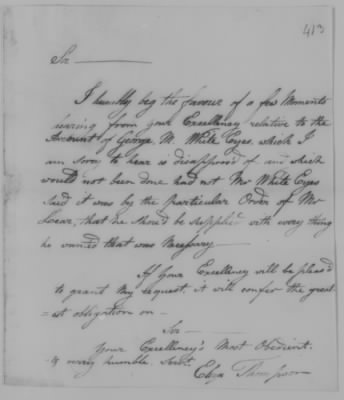 413
Sir
I humbly beg the favour of a few Moments
hearing from your Excellency relative to the
Account of George M. White Eyes which I
am sorry to hear is disapprov'd of and which
would not been done had not Mr White Eyes
said it was by the particular Order of Mr
Lear, that he should be supplied with every thing
he wanted that was Necessary
If your Excellency will be pleas'd
to grant my request. it will confer the great
=est obligation on
Sir
Your Excellency's Most Obedient
& very humble Servt.
Eliza Thompson